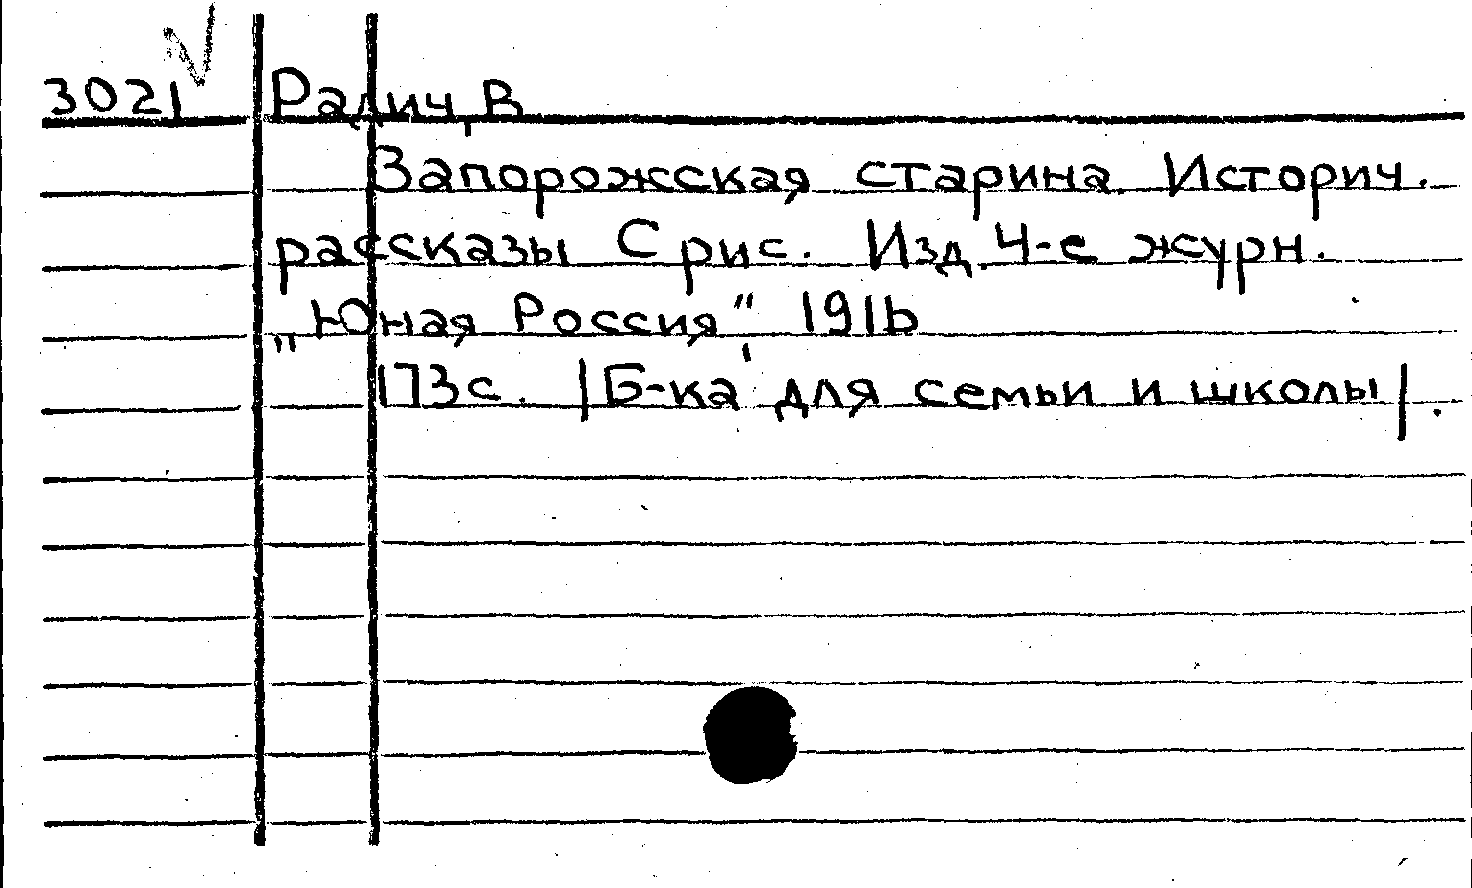 3021 Радич, В
Запорожская старина. Историч.
рассказы С рис. Изд. 4-е журн.
„Юная Россия" 1916
173с. |Б-ка для семьи и школы|.